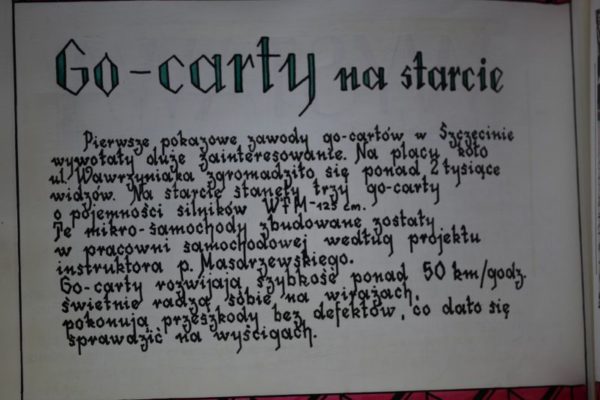 Go-carty na starcie
Pierwsze pokazowe zawody go-cartów w Szczecinie
wywołały duże zainteresowanie. Na placu koło
ul. Wawrzyniaka zgromadziło się ponad 2 tysiące
widzów. Na starcie stanęły trzy go-carty
o pojemności silników WFM-125 cm.
Te mikro-samochody zbudowane zostały
w pracowni samochodowej według projektu
instruktora p. Masdrzewskiego.
Go-carty rozwijają szybkość ponad 50 km/godz.
świetnie radzą sobie na wirażach,
pokonują przeszkody bez defektów, co dało się
sprawdzić na wyścigach.